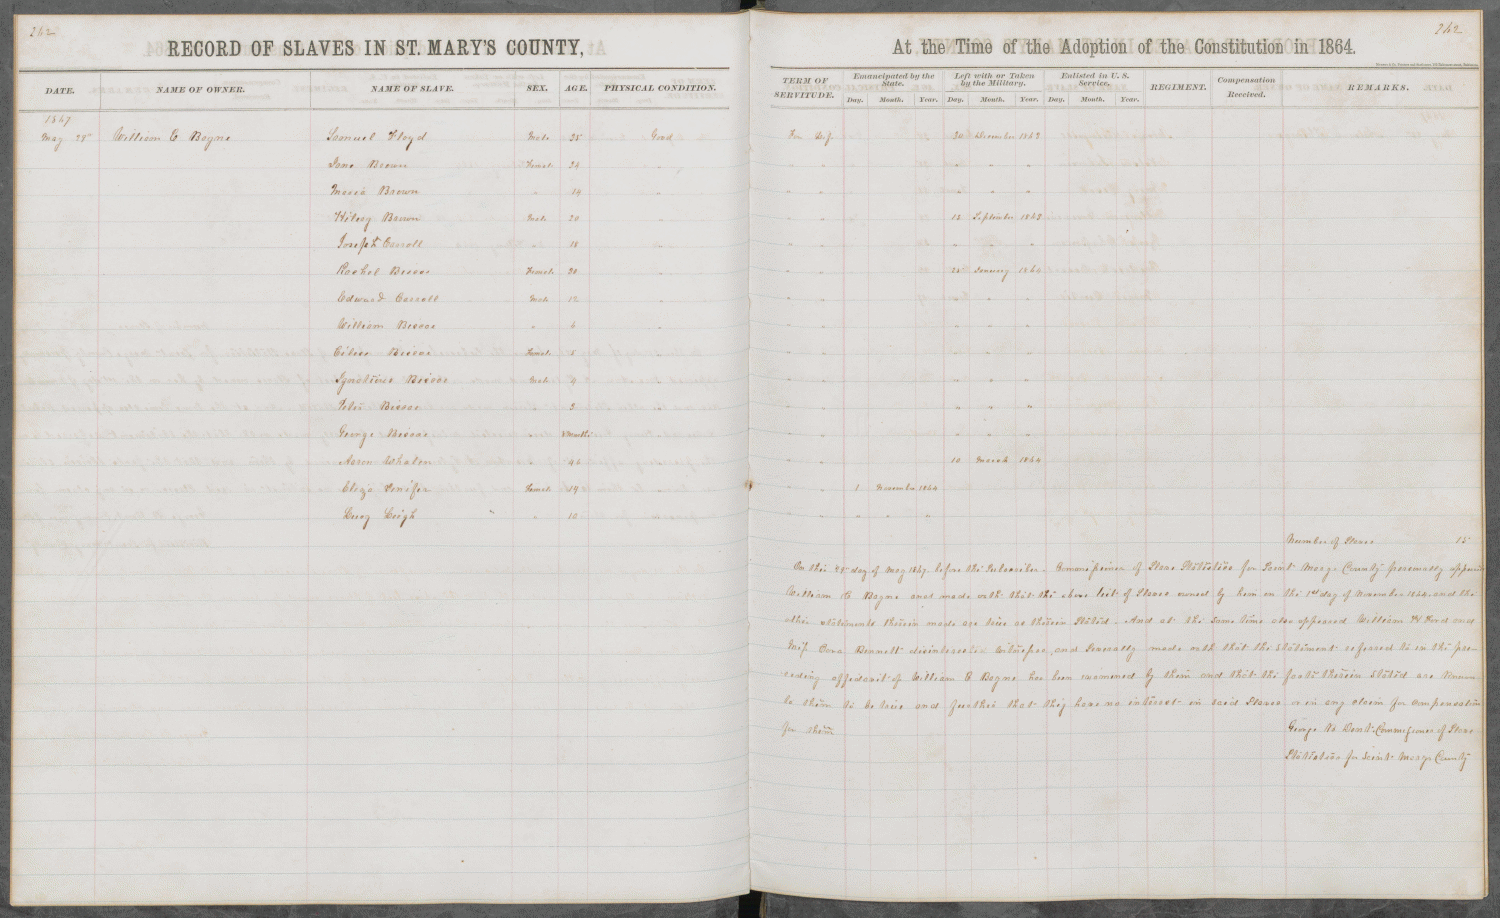 262
RECORD OF SLAVES IN ST. MARY'S COUNTY,
DATE. NAME OF OWNER. NAME OF SLAVE. SEX. AGE. PHYSICAL CONDITION.
1867
May 28 William E Bayne Samuel Floyd Male 25 Good
Jane Brown Female 24 "
Maria Brown " 14 "
Hilery Brown Male 20 "
Joseph Carroll " 18 "
Rachel Biscoe Female 28 "
Edward Carroll Male 12 "
William Biscoe " 6 "
Biscoe Female 5 "
Ignatius Biscoe Male 4 "
Peter Biscoe " 3 "
George Biscoe " 8 Months "
Aaron Whalen " 46 "
Eliza Jenifer Female 14 "
Lucy Leigh " 10 "
262
At the Time of the Adoption of the Constitution in 1864.
TERM OF SERVITUDE. Emancipated by the State. Left with or Taken by the Military. Enlisted in U. S. Service. REGIMENT. Compensation Received. REMARKS.
Day. Month. Year. Day. Month. Year. Day. Month. Year.
For Life 30 December 1863
" " " " "
" " " " "
" " 12 September 1863
" " " " "
" " 25 January 1864
" " " " "
" " " " "
" " " " "
" " " " "
" " " " "
" " " " "
" " 10 March 1864
" " 1 November 1864
" " " " "
Number of Slaves 15
On this 28th day of May 1867. before the Subscriber. Commissioner of Slave Statistics for Saint Marys County personally appeared
William E Bayne and made oath that the above list of Slaves owned by him on the 1st day of November 1864. and the
other statements therein made are true as therein Stated. And at the same time also appeared William H and
Miss Cora Bennett disinterested witnesses, and Severally made oath that the statement referred to in the pre-
ceding affidavit of William E Bayne has been examined by them and that the facts therein stated are known
to them to be true and further that they have no interest in said Slaves or in any claim for compensation
for them
George B Dent. Commissioner of Slave
Statistics for Saint Marys County